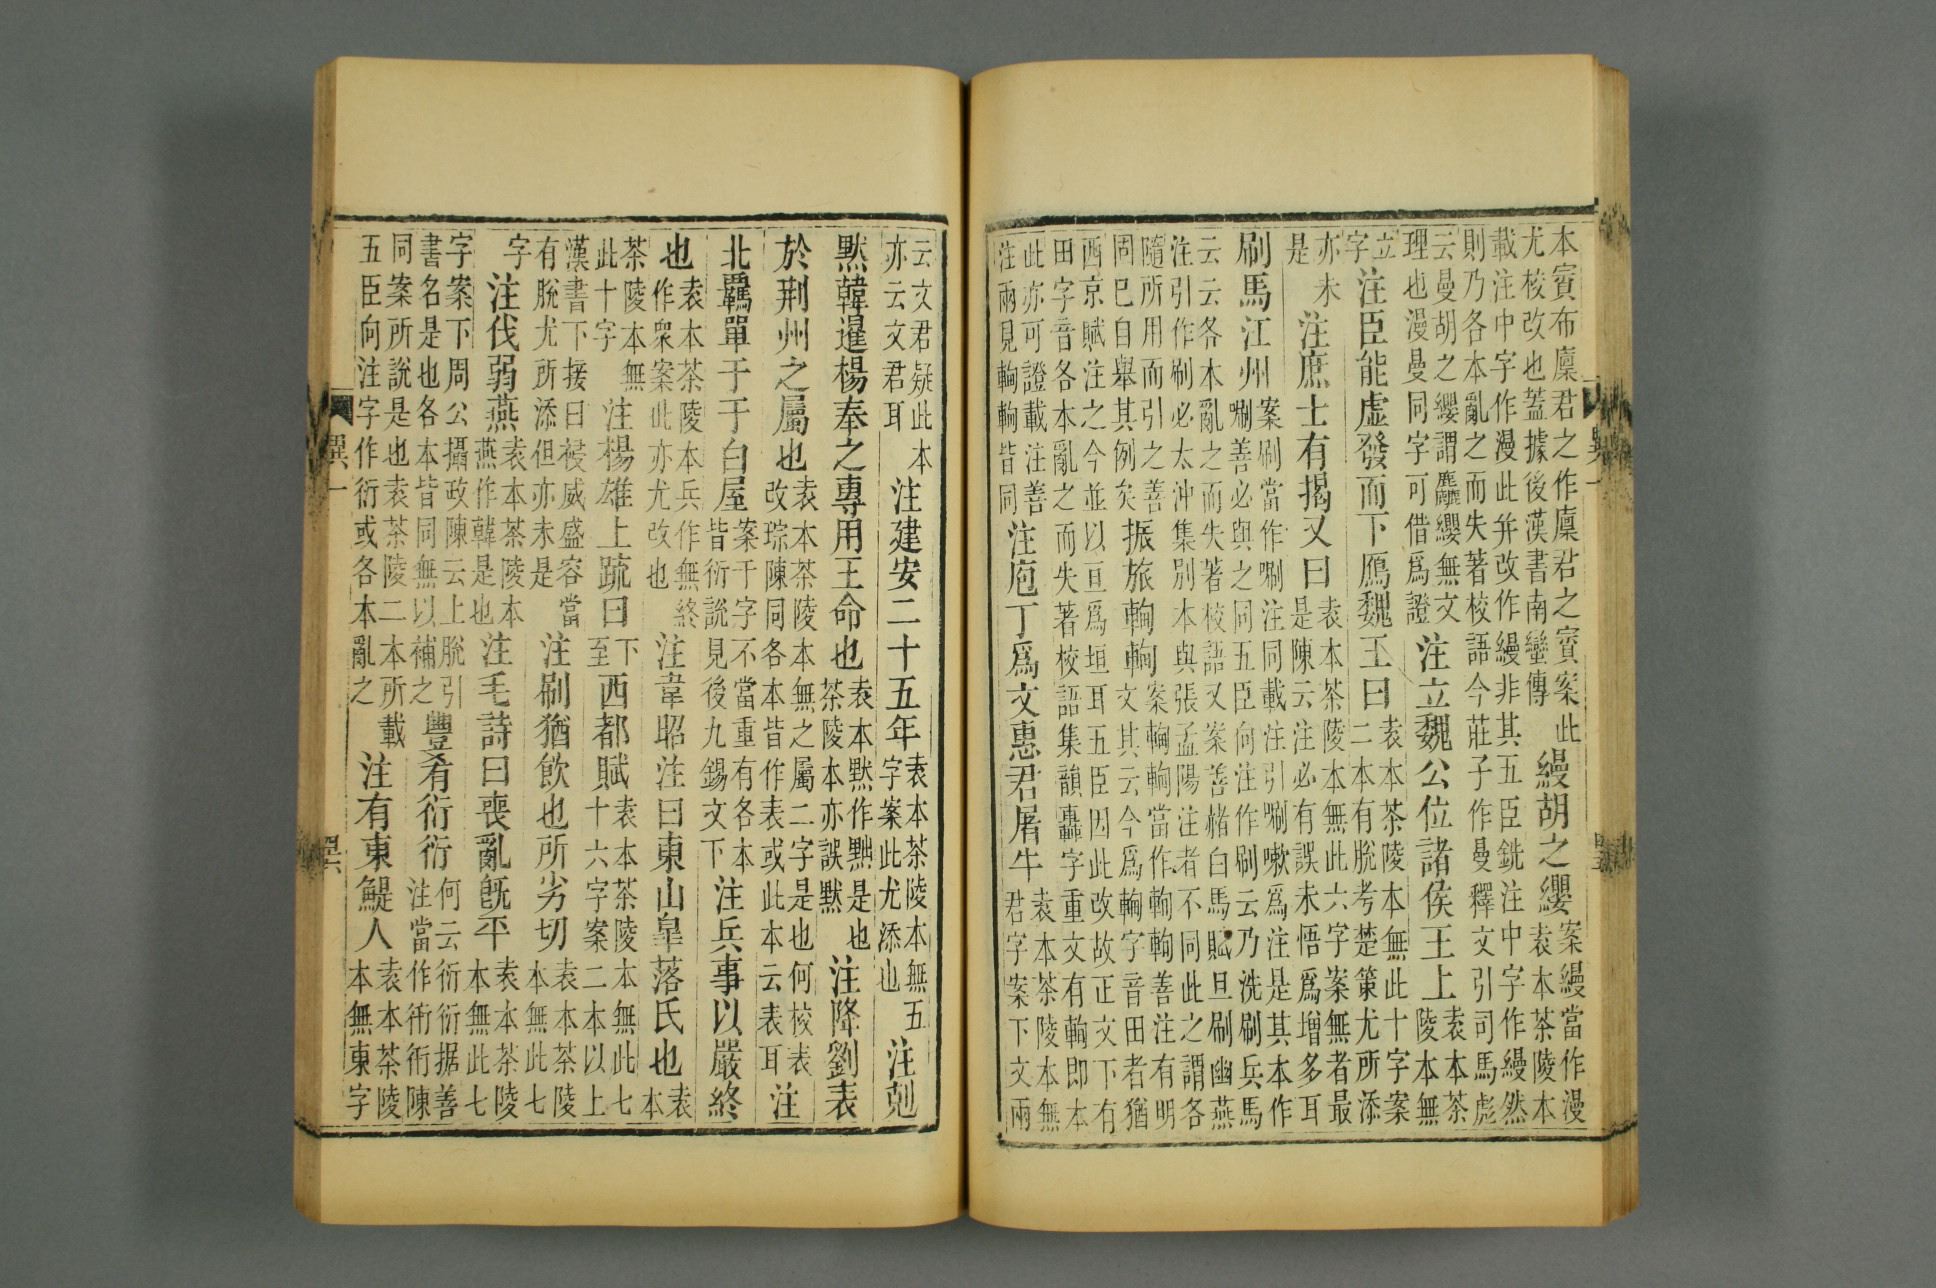 本賓布廩君之作廩君之賓案此
尤校改也蓋據後漢書南蠻傳
縵胡之纓
案縵當作漫
袁本茶陵本
載注中字作漫此并改作縵非其五臣銑注中字作縵然
則乃各本亂之而失著校語今莊子作曼釋文引司馬彪
云曼胡之纓謂麤纓無文
理也漫曼同字可借爲證
注立魏公位諸侯王上
袁本茶
陵本無
立
字
注臣能虛發而下鴈魏王曰
袁本茶陵本無此十字案
二本有脫考楚策尤所添
亦未
是
注庶士有揭又曰
袁本茶陵本無此六字案無者最
是陳云注必有誤未悟爲增多耳
刷馬江州
案刷當作唰注同載注引唰嗽爲注是其本作
唰善必與之同五臣向注作刷云乃洗刷兵馬
云云各本亂之而失著校語又案善赭白馬賦旦刷幽燕
注引作刷必太沖集別本與張孟陽注者不同此之謂各
隨所用而引之善
固已自舉其例矣
振旅輷輷
案輷輷當作輷輷輷善注有明
文其云今爲輷字音田者猶
西京賦注之今並以亘爲垣耳五臣因此改故正文下有
田字音各本亂之而失著校語集韻轟字重文有輷即本
此亦可證載注善
注兩見輷輷皆同
注庖丁爲文惠君屠牛
袁本茶陵本無
君字案下文兩
云文君疑此本
亦云文君耳
注建安二十五年
袁本茶陵本無五
字案此尤添也
注剋
黙韓暹楊奉之專用王命也
袁本黙作黜是也
茶陵本亦誤黙
注降劉表
於荆州之屬也
袁本茶陵本無之屬二字是也何校表
改琮陳同各本皆作表或此本云表耳
注
北羈單于于白屋
案于字不當重有各本
皆衍說見後九錫文下
注兵事以嚴終
也
袁本茶陵本兵作無終
作衆案此亦尤改也
注韋昭注曰東山皐落氏也
袁
本
茶陵本無
此十字
注楊雄上疏曰
下
至
西都賦
袁本茶陵本無此七
十六字案二本以上
漢書下接曰祲威盛容當
有脫尤所添但亦未是
注刷猶飲也所劣切
袁本茶陵
本無此七
字
注伐弱燕
袁本茶陵本
燕作韓是也
注毛詩曰喪亂旣平
袁本茶陵
本無此七
字案下周公攝政陳云上脫引
書名是也各本皆同無以補之
豐肴衍衍
何云衍衍据善
注當作衎衎陳
同案所說是也袁茶陵二本所載
五臣向注字作衍或各本亂之
注有東鯷人
袁本茶陵
本無東字